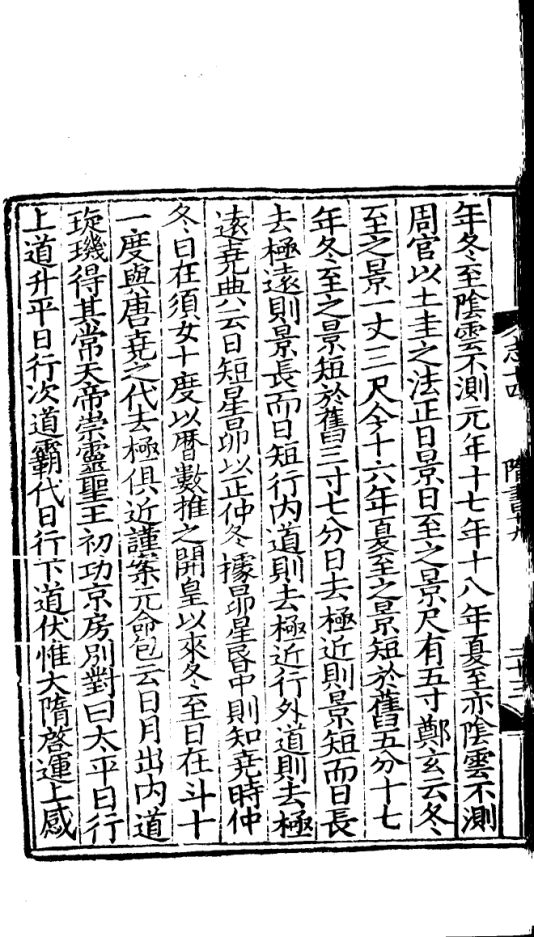 志十四 隋書十九 二十三
年冬至陰雲不測元年十七年十八年夏至亦陰雲不測
周官以土圭之法正日景日至之景尺有五寸鄭玄云冬
至之景一丈三尺今十六年夏至之景短於舊五分十七
年冬至之景短於舊三寸七分日去極近則景短而日長
去極遠則景長而日短行内道則去極近行外道則去極
遠堯典云日短星昴以正仲冬據昴星昏中則知堯時仲
冬日在須女十度以曆數推之開皇以來冬至日在斗十
一度與唐堯之代去極俱近謹案元命包云日月出内道
琁璣得其常天帝崇靈聖王初功京房別對曰太平日行
上道升平日行次道霸代日行下道伏惟大隋啓運上感